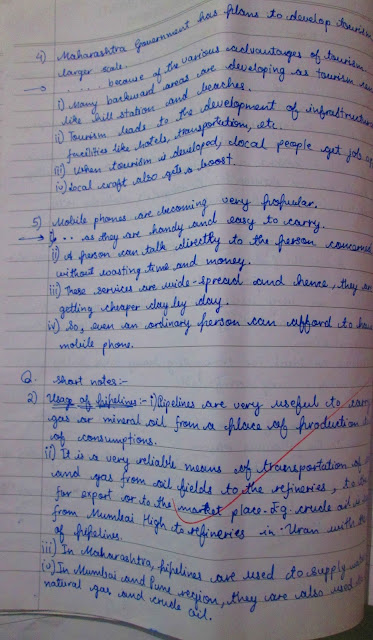 4) Maharashtra Government has plans to develop tourism
larger scale.
→ .... because of the various advantages of tourism.
i) Many backward areas are developing as tourism
like hill station and beaches.
ii) Tourism leads to the development of infrastructure
facilities like hotels, transportation, etc.
iii) When tourism is developed, local people get job
iv) Local craft also gets a boost.
5) Mobile phones are becoming very popular.
→ ... as they are handy and easy to carry.
i) A person can talk directly to the person concerned
without wasting time and money.
iii) These services are wide-spread and hence, they
getting cheaper day by day.
iv) So, even an ordinary person can afford to
mobile phone.
Q. short notes:-
2) Usage of pipelines:- i) Pipelines are very useful to carry
gas or mineral oil from a place of production
of consumptions.
ii) It is a very reliable means of transportation of
and gas from oil fields to the refineries, to
for export or to the market place. E.g. crude oil
from Mumbai High to refineries in Uran with
of pipelines.
iii) In Maharashtra, pipelines are used to supply
iv) In Mumbai and Pune region, they are also used
natural gas and crude oil.